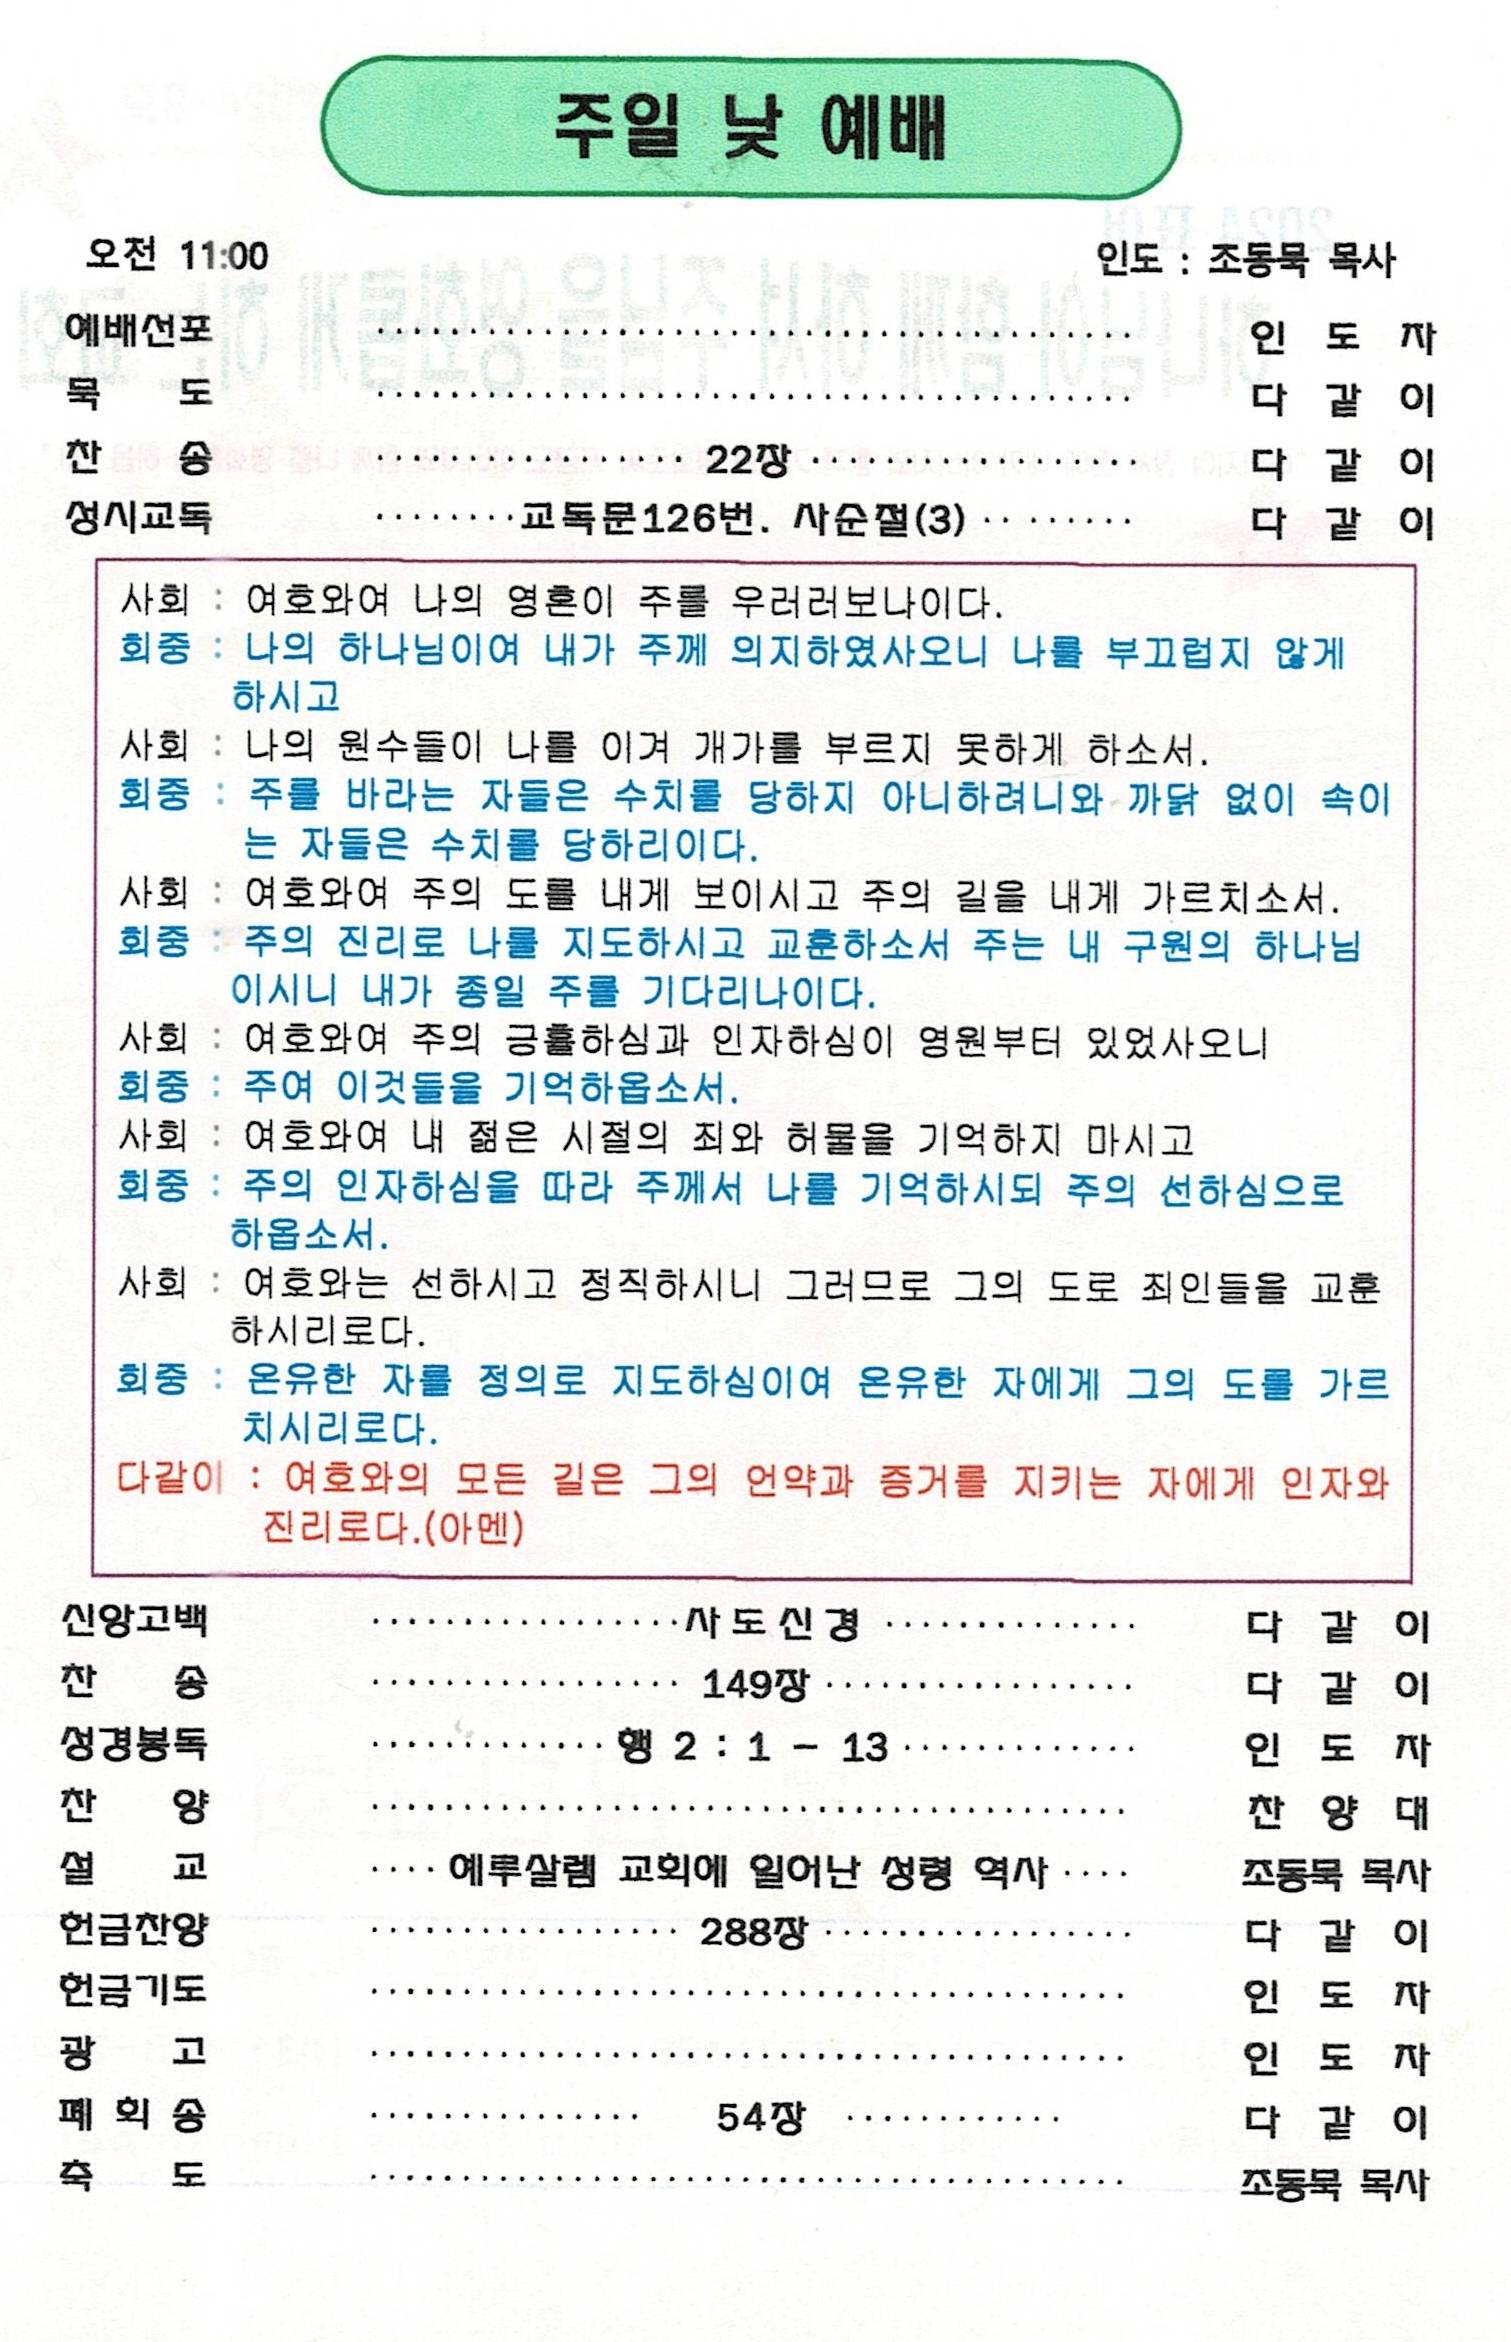 주일 낮 예배
오전 11:00 인도 : 조동묵 목사
예배선포 ········································· 인 도 자
묵 도 ········································· 다 같 이
찬 송 ················· 22장 ··················· 다 같 이
성시교독 ········교독문126번. 사순절(3) ·· ······· 다 같 이
사회 : 여호와여 나의 영혼이 주를 우러러보나이다.
회중 : 나의 하나님이여 내가 주께 의지하였사오니 나를 부끄럽지 않게
하시고
사회 : 나의 원수들이 나를 이겨 개가를 부르지 못하게 하소서.
회중 : 주를 바라는 자들은 수치를 당하지 아니하려니와 까닭 없이 속이
는 자들은 수치를 당하리이다.
사회 : 여호와여 주의 도를 내게 보이시고 주의 길을 내게 가르치소서.
회중 : 주의 진리로 나를 지도하시고 교훈하소서 주는 내 구원의 하나님
이시니 내가 종일 주를 기다리나이다.
사회 : 여호와여 주의 긍휼하심과 인자하심이 영원부터 있었사오니
회중 : 주여 이것들을 기억하옵소서.
사회 : 여호와여 내 젊은 시절의 죄와 허물을 기억하지 마시고
회중 : 주의 인자하심을 따라 주께서 나를 기억하시되 주의 선하심으로
하옵소서.
사회 : 여호와는 선하시고 정직하시니 그러므로 그의 도로 죄인들을 교훈
하시리로다.
회중 : 온유한 자를 정의로 지도하심이여 온유한 자에게 그의 도를 가르
치시리로다.
다같이 : 여호와의 모든 길은 그의 언약과 증거를 지키는 자에게 인자와
진리로다.(아멘)
신앙고백 ·················사도신경 ·············· 다 같 이
찬 송 ················· 149장 ················· 다 같 이
성경봉독 ············· 행 2 : 1 - 13 ············· 인 도 자
찬 양 ········································· 찬 양 대
설 교 ···· 예루살렘 교회에 일어난 성령 역사 ···· 조동묵 목사
헌금찬양 ················· 288장 ················· 다 같 이
헌금기도 ········································· 인 도 자
광 고 ········································· 인 도 자
폐 회 송 ··············· 54장 ············ 다 같 이
축 도 ········································· 조동묵 목사